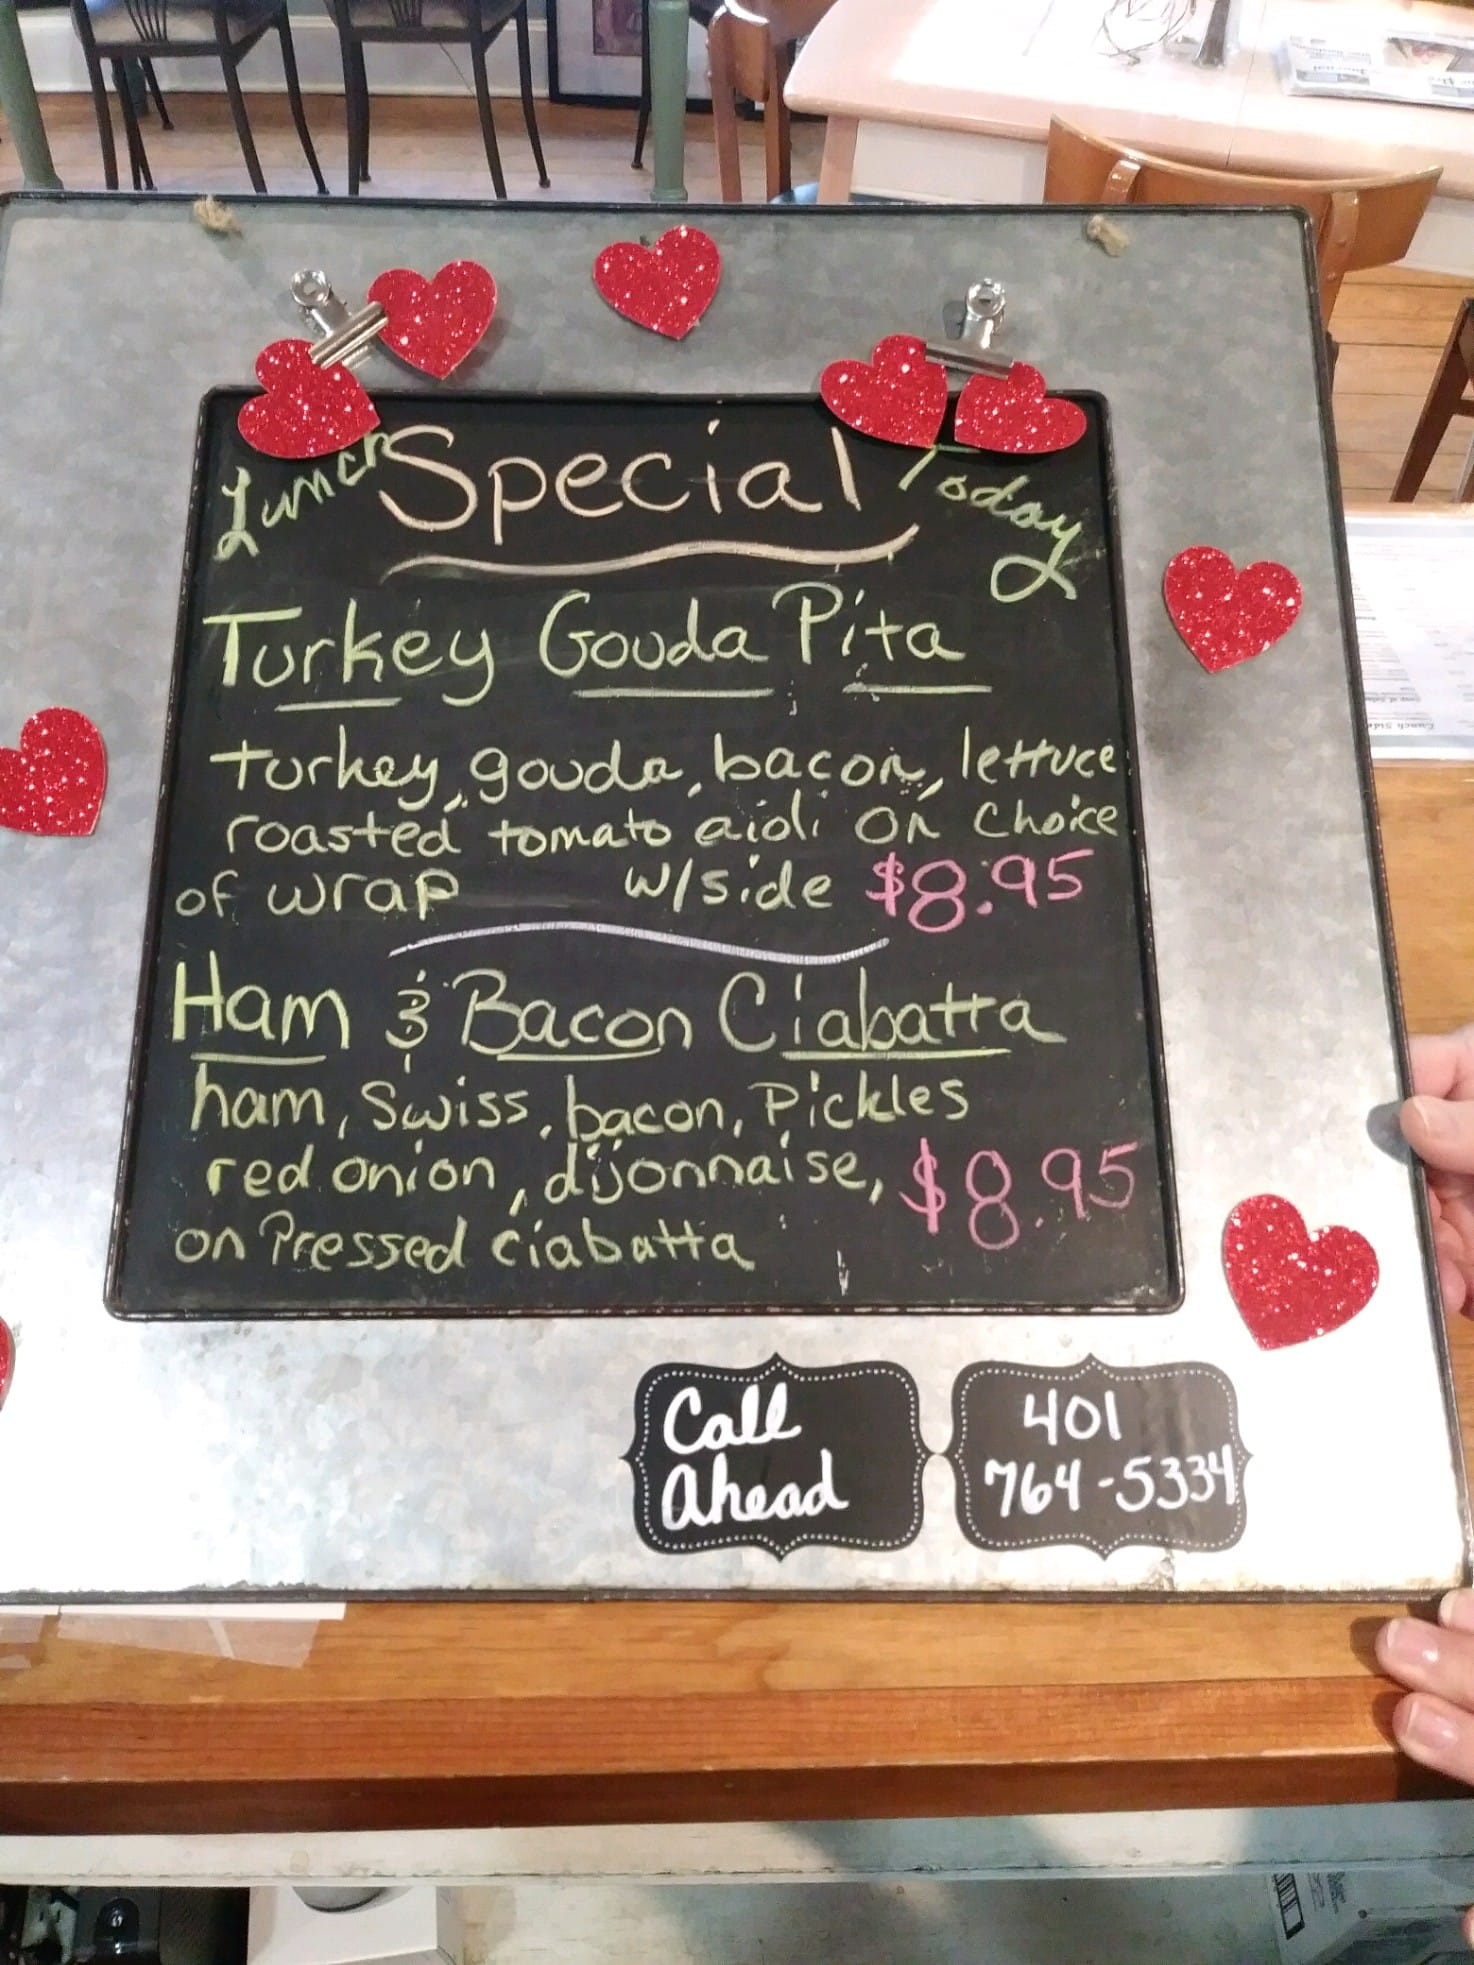 Lunch Special Today
Turkey Gouda Pita
turkey, gouda, bacon, lettuce
roasted tomato aioli on choice
of wrap w/side $8.95
Ham & Bacon Ciabatta
ham, Swiss, bacon, Pickles
red onion, dijonnaise, $8.95
on Pressed ciabatta
Call
Ahead
401
764-5334
Journal
Lunch Side